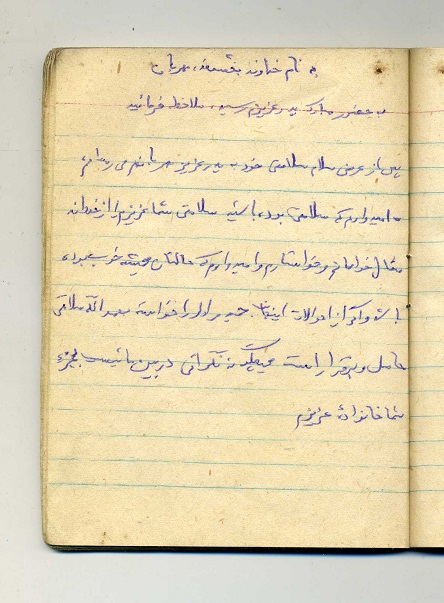 به نام خداوند بخشنده مهربان
به حضور مبارک پدر عزیزم رسیده ملاحظه فرمائید
پس از عرض سلام سلامتی خود به پدر عزیز مهربانم می رسانم
امیدوارم که سلامتی بوده باشید سلامتی شما عزیزم را از خداوند
متعال خواهانم و خواستارم و امیدوارم که حالتان همیشه خوب بوده
باشد و اگر از احوالات اینجانب را خواسته بحمدالله سلامتی
حاصل و برقرار است هیچگونه نگرانی در بین نیست بجزء
شما خانوادۀ عزیزم